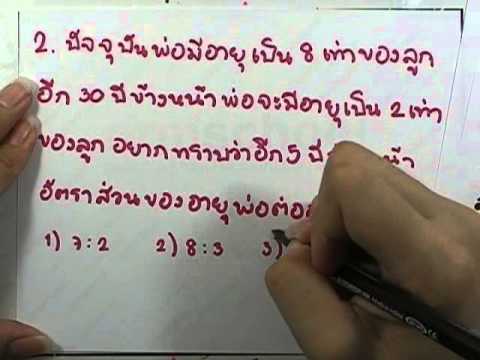 2. ปัจจุบันพ่อมีอายุเป็น 8 เท่าของลูก
อีก 30 ปีข้างหน้าพ่อจะมีอายุเป็น 2 เท่า
ของลูก อยากทราบว่าอีก 5 ปี
อัตราส่วนของอายุพ่อต่อ
1) 7:2 2) 8:3 3)